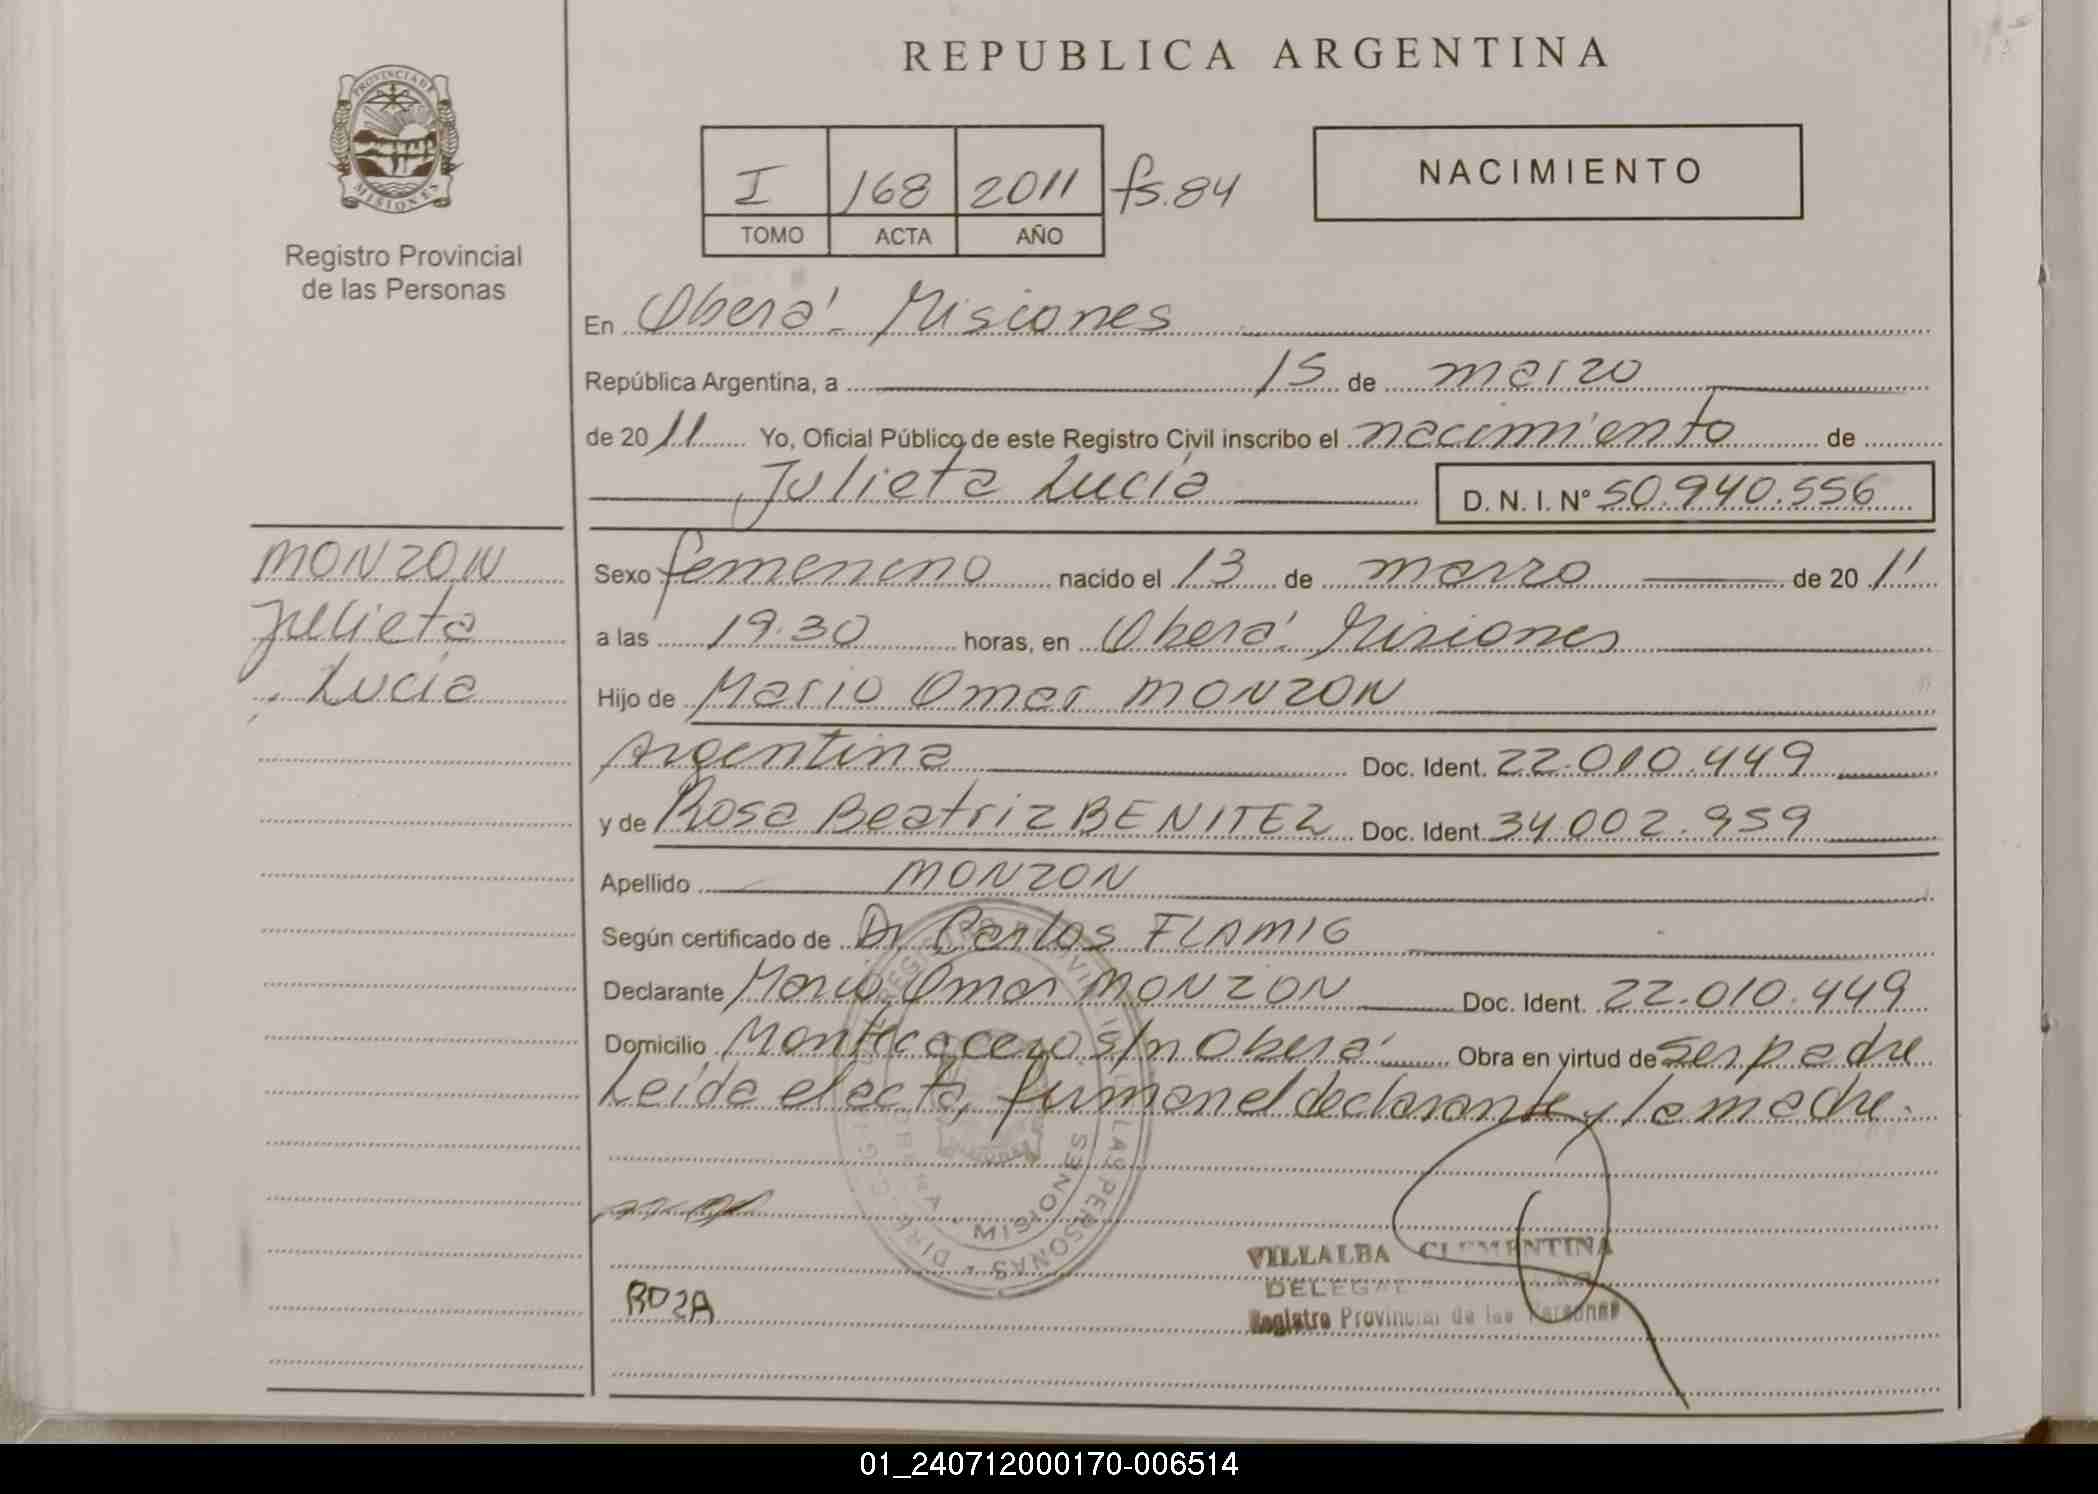 REPUBLICA ARGENTINA
PROVINCIA DE
MISIONES
Registro Provincial
de las Personas
I 168 2011 fs.84
TOMO ACTA AÑO
NACIMIENTO
En Oberá - Misiones
República Argentina, a 15 de marzo
de 2011 Yo, Oficial Público de este Registro Civil inscribo el nacimiento de
Julieta Lucía D. N. I. Nº 50.940.556
MONZON
Julieta
Lucía
Sexo femenino nacido el 13 de marzo de 2011
a las 19.30 horas, en Oberá - Misiones
Hijo de Mario Omar MONZON
Argentina Doc. Ident. 22.010.449
y de Rosa Beatriz BENITEZ Doc. Ident. 34.002.959
Apellido MONZON
Según certificado de Dr Carlos FLAMIG
Declarante Mario Omar MONZON Doc. Ident. 22.010.449
Domicilio s/n Oberá Obra en virtud de ser padre
Leída el acta, firman el declarante y la madre.
MISIONES
VILLALBA CLEMENTINA
Registro Provincial de las Personas
01_240712000170-006514